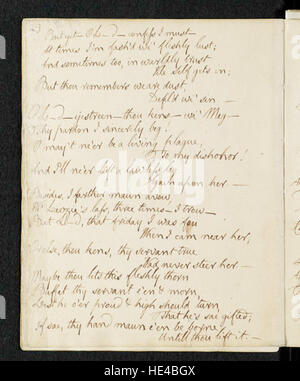 But yet O L—d — confess I must
At times I'm fash'd wi' fleshly lust;
And sometimes too, in warldly trust
Vile Self gets in;
But thou remembers we are dust
Defil'd wi' sin —
O L—d — yestreen — thou kens — wi' Meg —
Thy pardon I sincerely beg!
O may't ne'er be a living plague,
To my dishonor!
And I'll ne'er lift a lawless leg
Again upon her —
Besides, I farther maun avow
Wi' Leezie's lass, three times — I trow —
But L—d, that friday I was fou
When I cam near her,
Or else, thou kens, thy servant true
Wad never steer her —
Maybe thou lets this fleshly thorn
Buffet thy servant e'en & morn
Lest he o'er proud & high should turn
That he's sae gifted;
If sae, thy hand maun e'en be borne
Untill thou lift it. —
alamy
HE4BGX